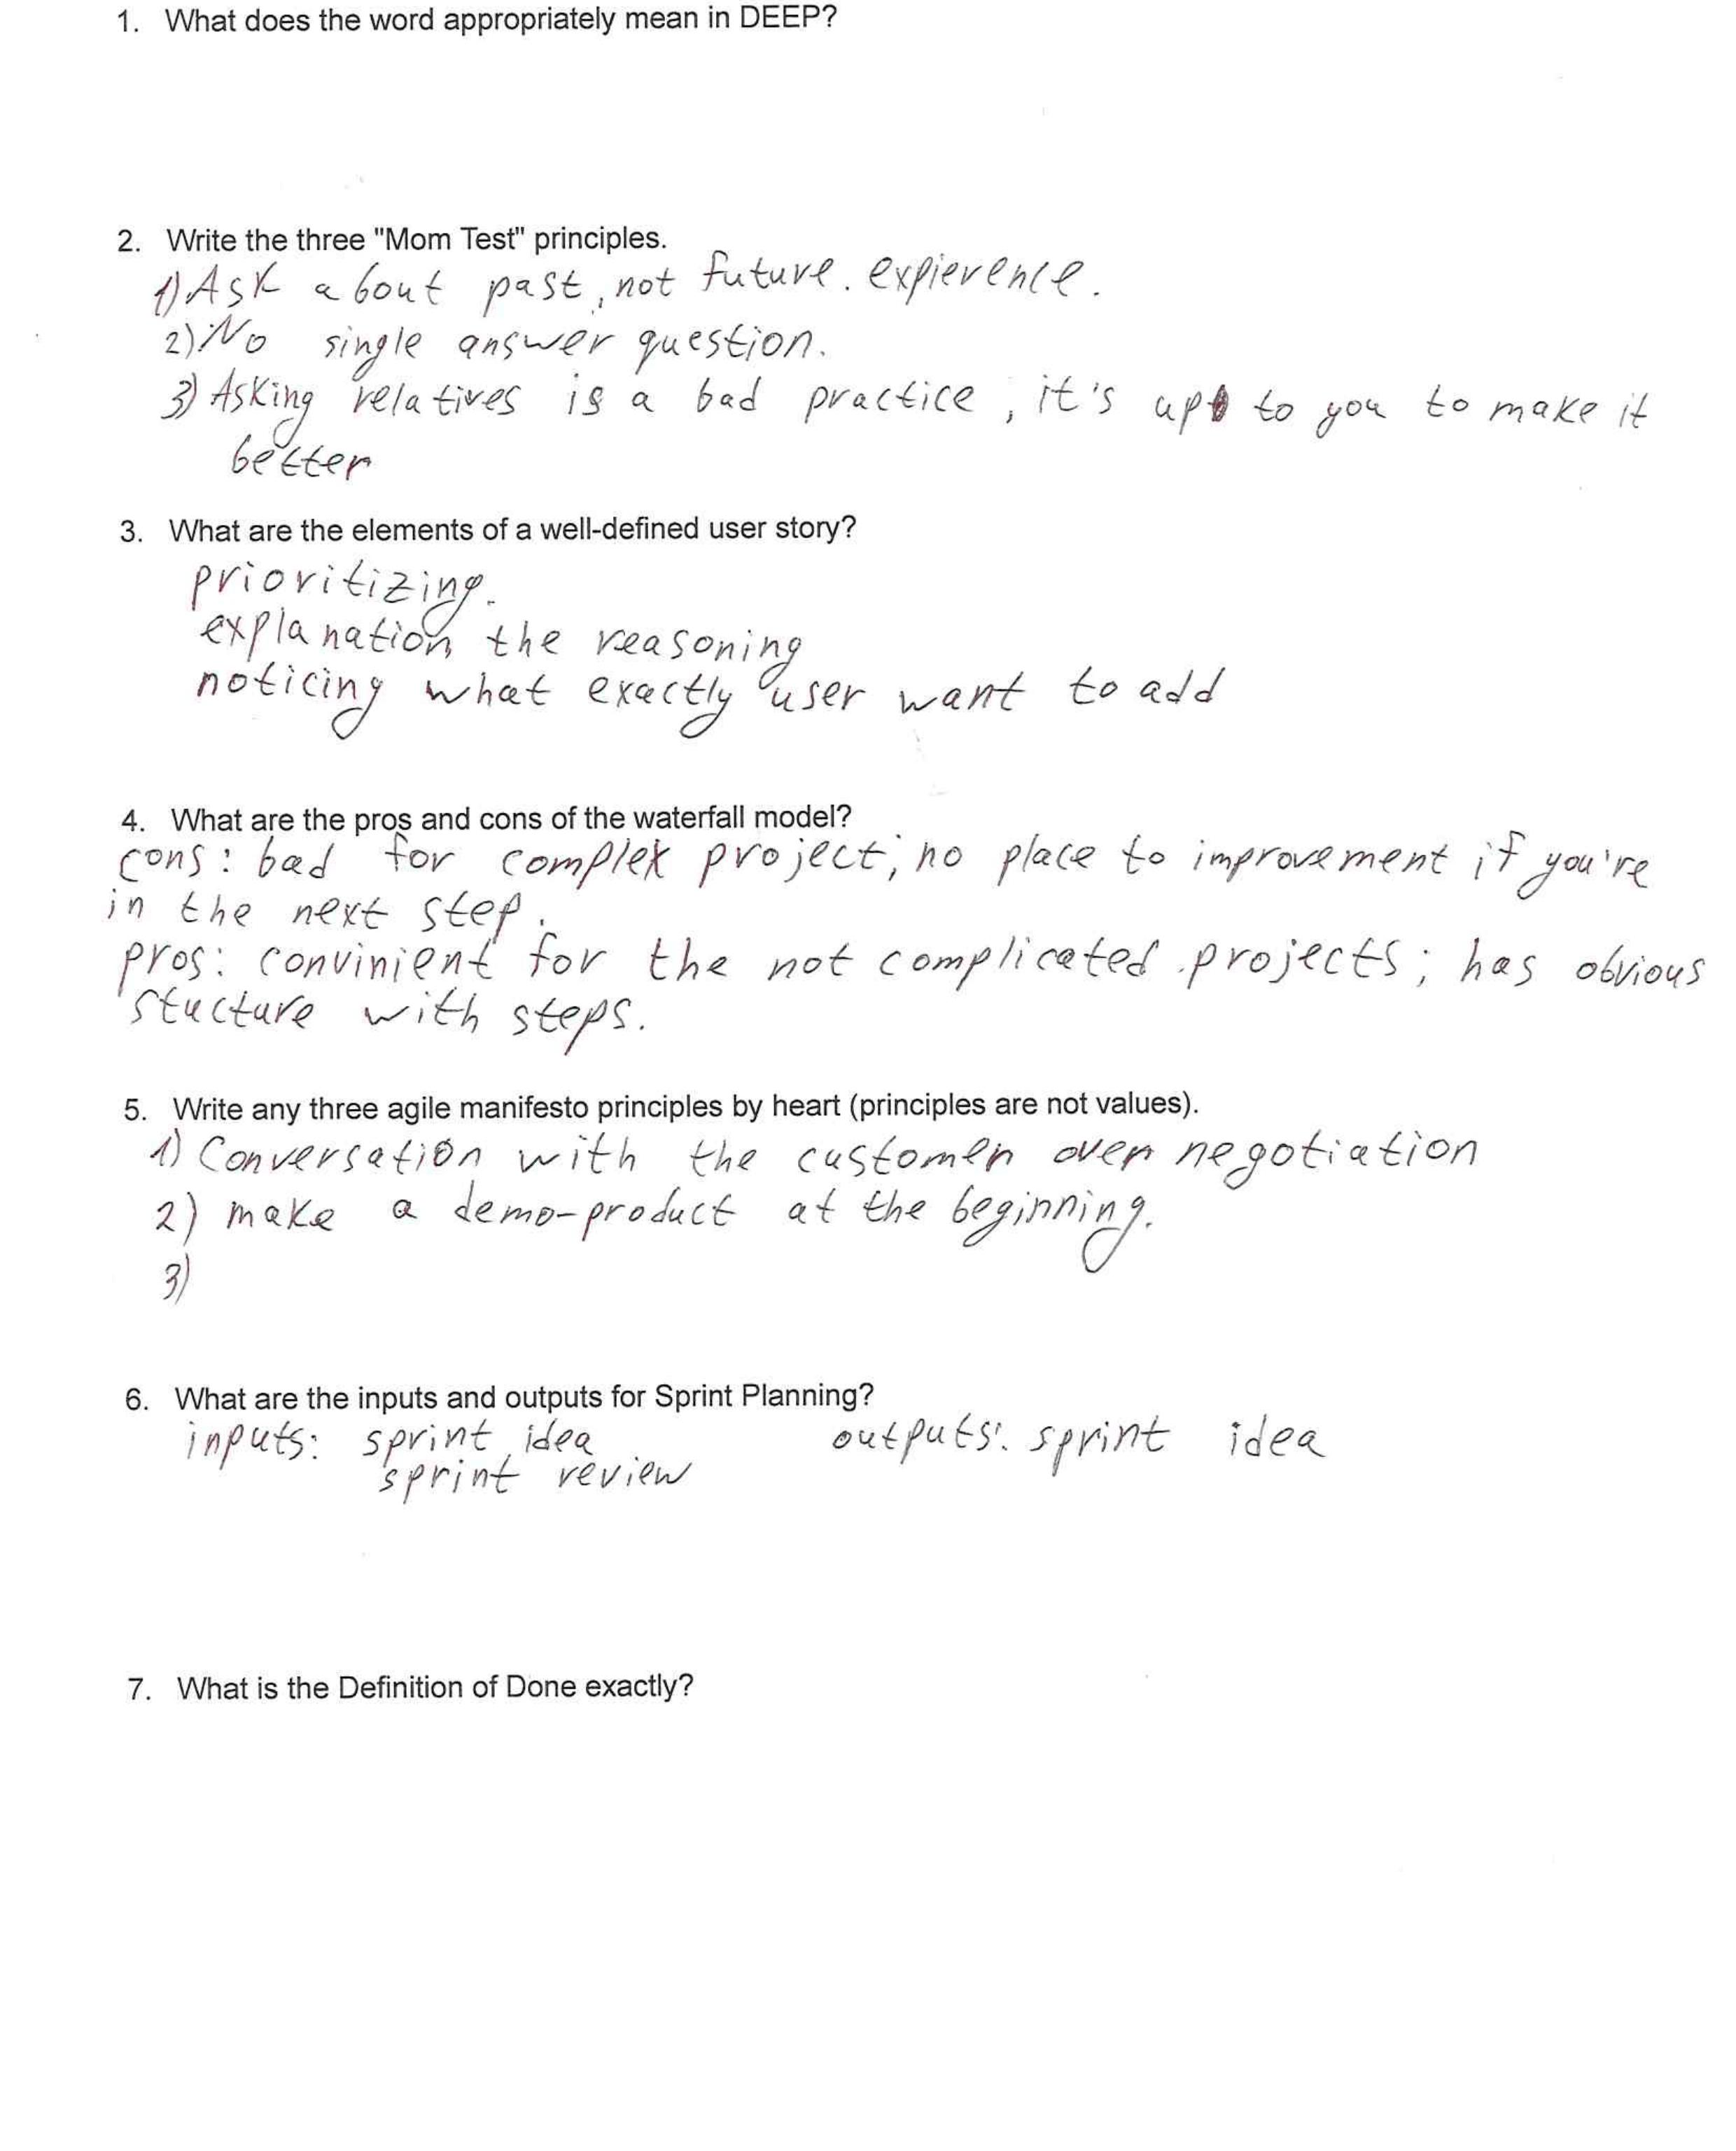 1. What does the word appropriately mean in DEEP?
2. Write the three "Mom Test" principles.
1) Ask about past, not future. expierence.
2) No single answer question.
3) Asking relatives is a bad practice, it's up to you to make it
better
3. What are the elements of a well-defined user story?
prioritizing.
explanation the reasoning
noticing what exactly user want to add
4. What are the pros and cons of the waterfall model?
cons: bad for complex project; no place to improvement if you're
in the next step.
pros: convinient for the not complicated projects; has obvious
stucture with steps.
5. Write any three agile manifesto principles by heart (principles are not values).
1) Conversation with the customer over negotiation
2) make a demo-product at the beginning.
3)
6. What are the inputs and outputs for Sprint Planning?
inputs: sprint idea outputs: sprint idea
sprint review
7. What is the Definition of Done exactly?